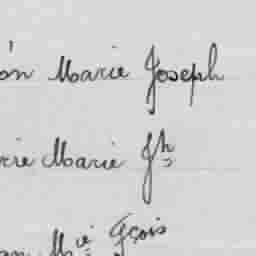 ón Marie Joseph
rie Marie Jh
an Mie Fçois